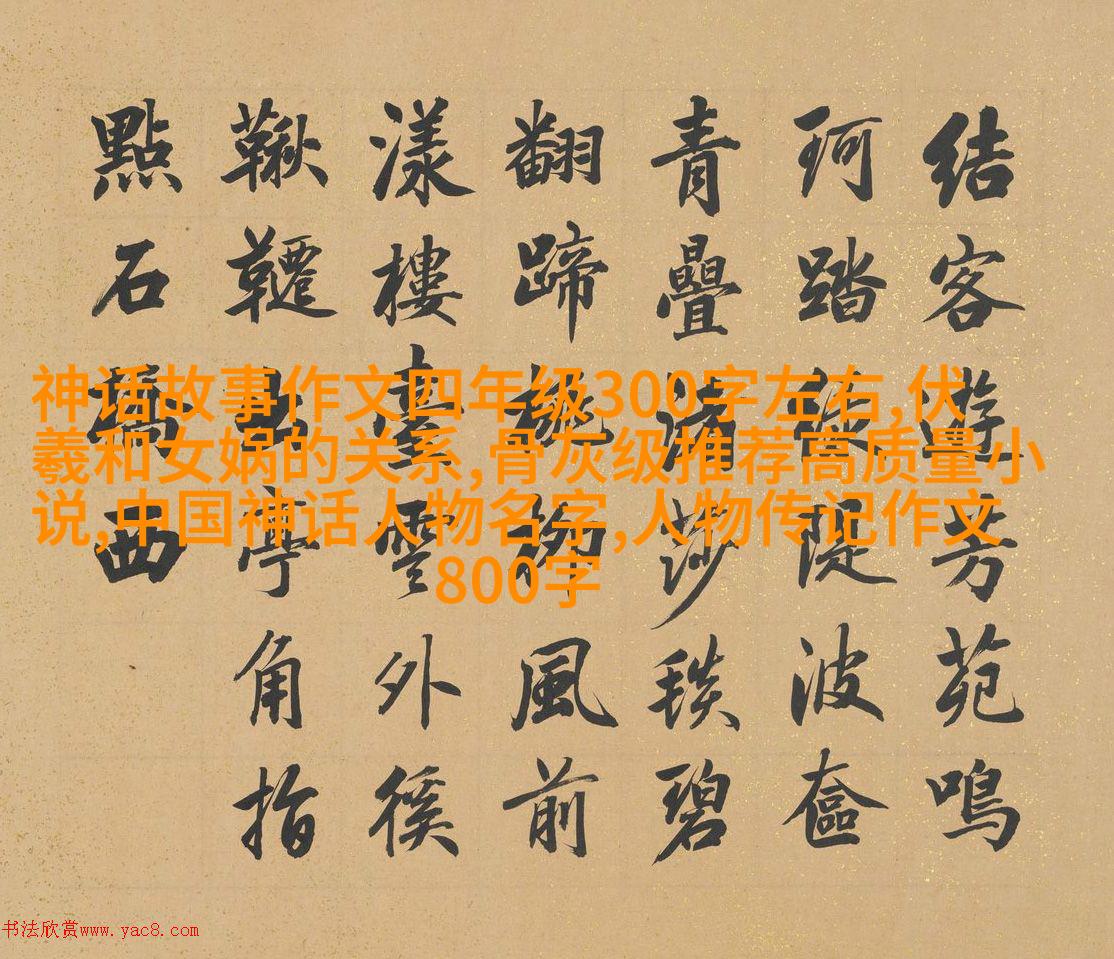 結客遊芳苑鳴
珂踏隄波奩
青疊渚莎毯碧
翻蹄風前
漾樓臺雲外徯
鞦韆亭角指
點石橋西
神话故事作文四年级300字左右,伏
羲和女娲的关系,骨灰级推荐高质量小
说,中国神话人物名字,人物传记作文
800字
书法欣赏www.yac8.com